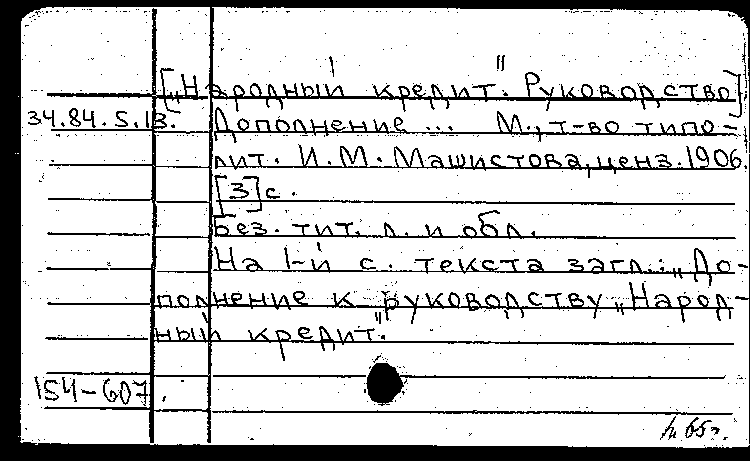 [„Народный кредит". Руководство]
34.84.5.13. Дополнение ... М., т-во типо-
лит. И.М. Машистова, ценз. 1906.
[3] с.
Без. тит. л. и обл.
На 1-й с. текста загл.: „До-
полнение к руководству „Народ-
ный кредит".
154-607.
65г.